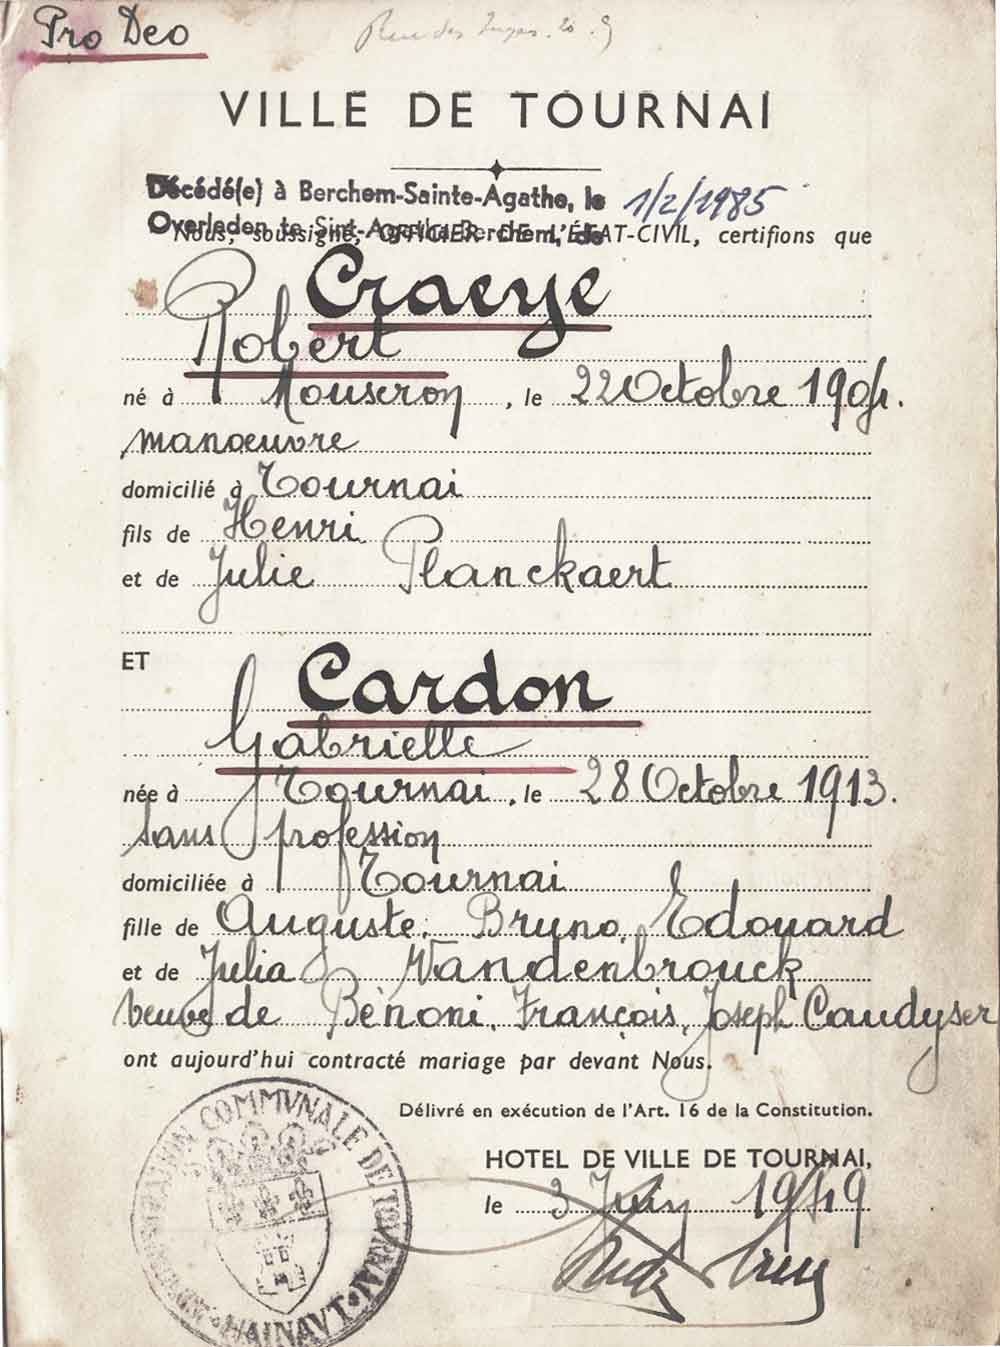 Pro Deo
Rue des
VILLE DE TOURNAI
Décédé(e) à Berchem-Sainte-Agathe, le 1/2/1985
Overleden te Sint-Agatha-Berchem, de
Nous, soussigné, OFFICIER DE L'ÉTAT-CIVIL, certifions que
Craeye
Robert
né à Mouscron, le 22 Octobre 1904.
manœuvre
domicilié à Tournai
fils de Henri
et de Julie Planckaert
ET
Cardon
Gabrielle
née à Tournai, le 28 Octobre 1913.
sans profession
domiciliée à Tournai
fille de Auguste, Bruno, Edouard
et de Julia Vandenbrouck
veuve de Bénoni, François, Joseph Caudyser
ont aujourd'hui contracté mariage par devant Nous.
Délivré en exécution de l'Art. 16 de la Constitution.
HOTEL DE VILLE DE TOURNAI,
le 3 Juin 1949
ADMINISTRATION COMMVNALE DE TOVRNAI
HAINAVT